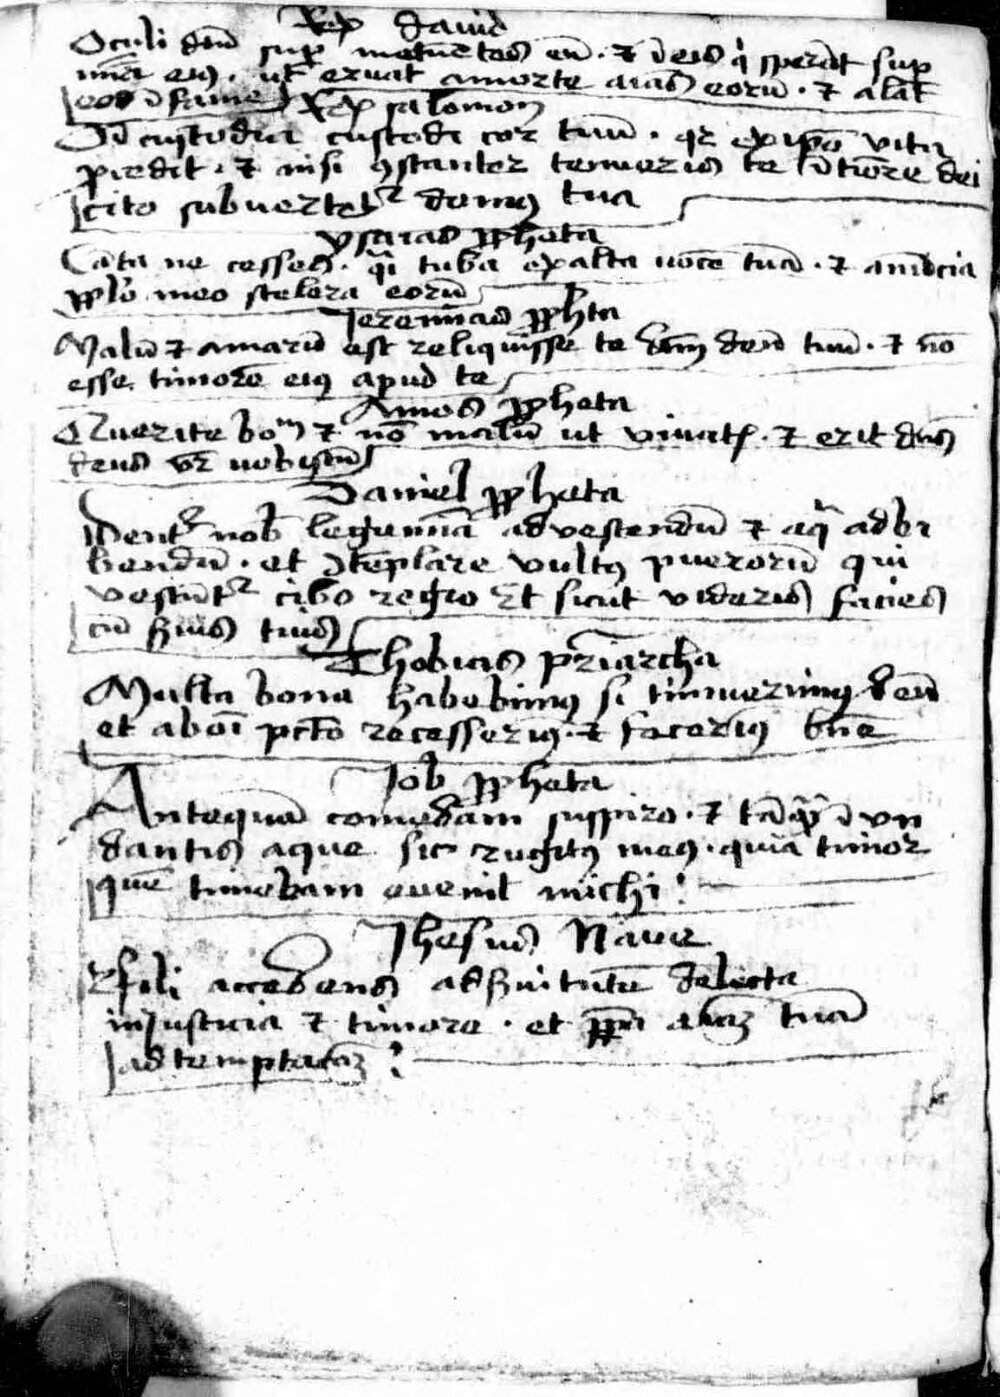 Rex david
Oculi dnī sup metuētes eū · et ī eis qī sperāt sup
mīa eiꝰ · ut eruat amorte aīas eorū · et alat
eos ī fame Rex salomon
Oī custodia custodi cor tuū · qr ex ipō vita
predit · et nisi ꝯstanter tenueris te ī tiōre dei
cito subvertetr domꝰ tua
ysaias ꝓpheta
Cāta ne cesses · qī tuba exalta uocē tuā · et anūcia
pplō meo scelera eorū
Jeremias ꝓphta
Malū et amarū est reliquisse te dōm deū tuū · et nō
esse timorē eiꝰ apud te
Amos ꝓpheta
Querite bom et nō malū ut vivatꝭ · et erit dns
deus vr̄ nobiscū
Daniel ꝓpheta
Dentr nob legumīa ad vescendū et aqa ad bi
bendū · et ꝯtēplare vultꝰ puerorū qui
vescūtr cibo regio Et sicut videris facies
cū suis tuis
Thobias pr̄iarcha
Multa bona habebimꝰ si timuerimꝰ deū
et ab oī pctō recesserimꝰ · et fecerimꝰ bn̄e
Job ꝓpheta
Antequā comedam suspiro · et tāqā ī un
dantis aque sic rugitꝰ meꝰ · quia timor
quē timebam evenit michi :
Jhesus Nave
Fili accedens ad suitutē delecta
in justicia et timore · et ppa aīaꝫ tuā
ad temptacōꝫ :